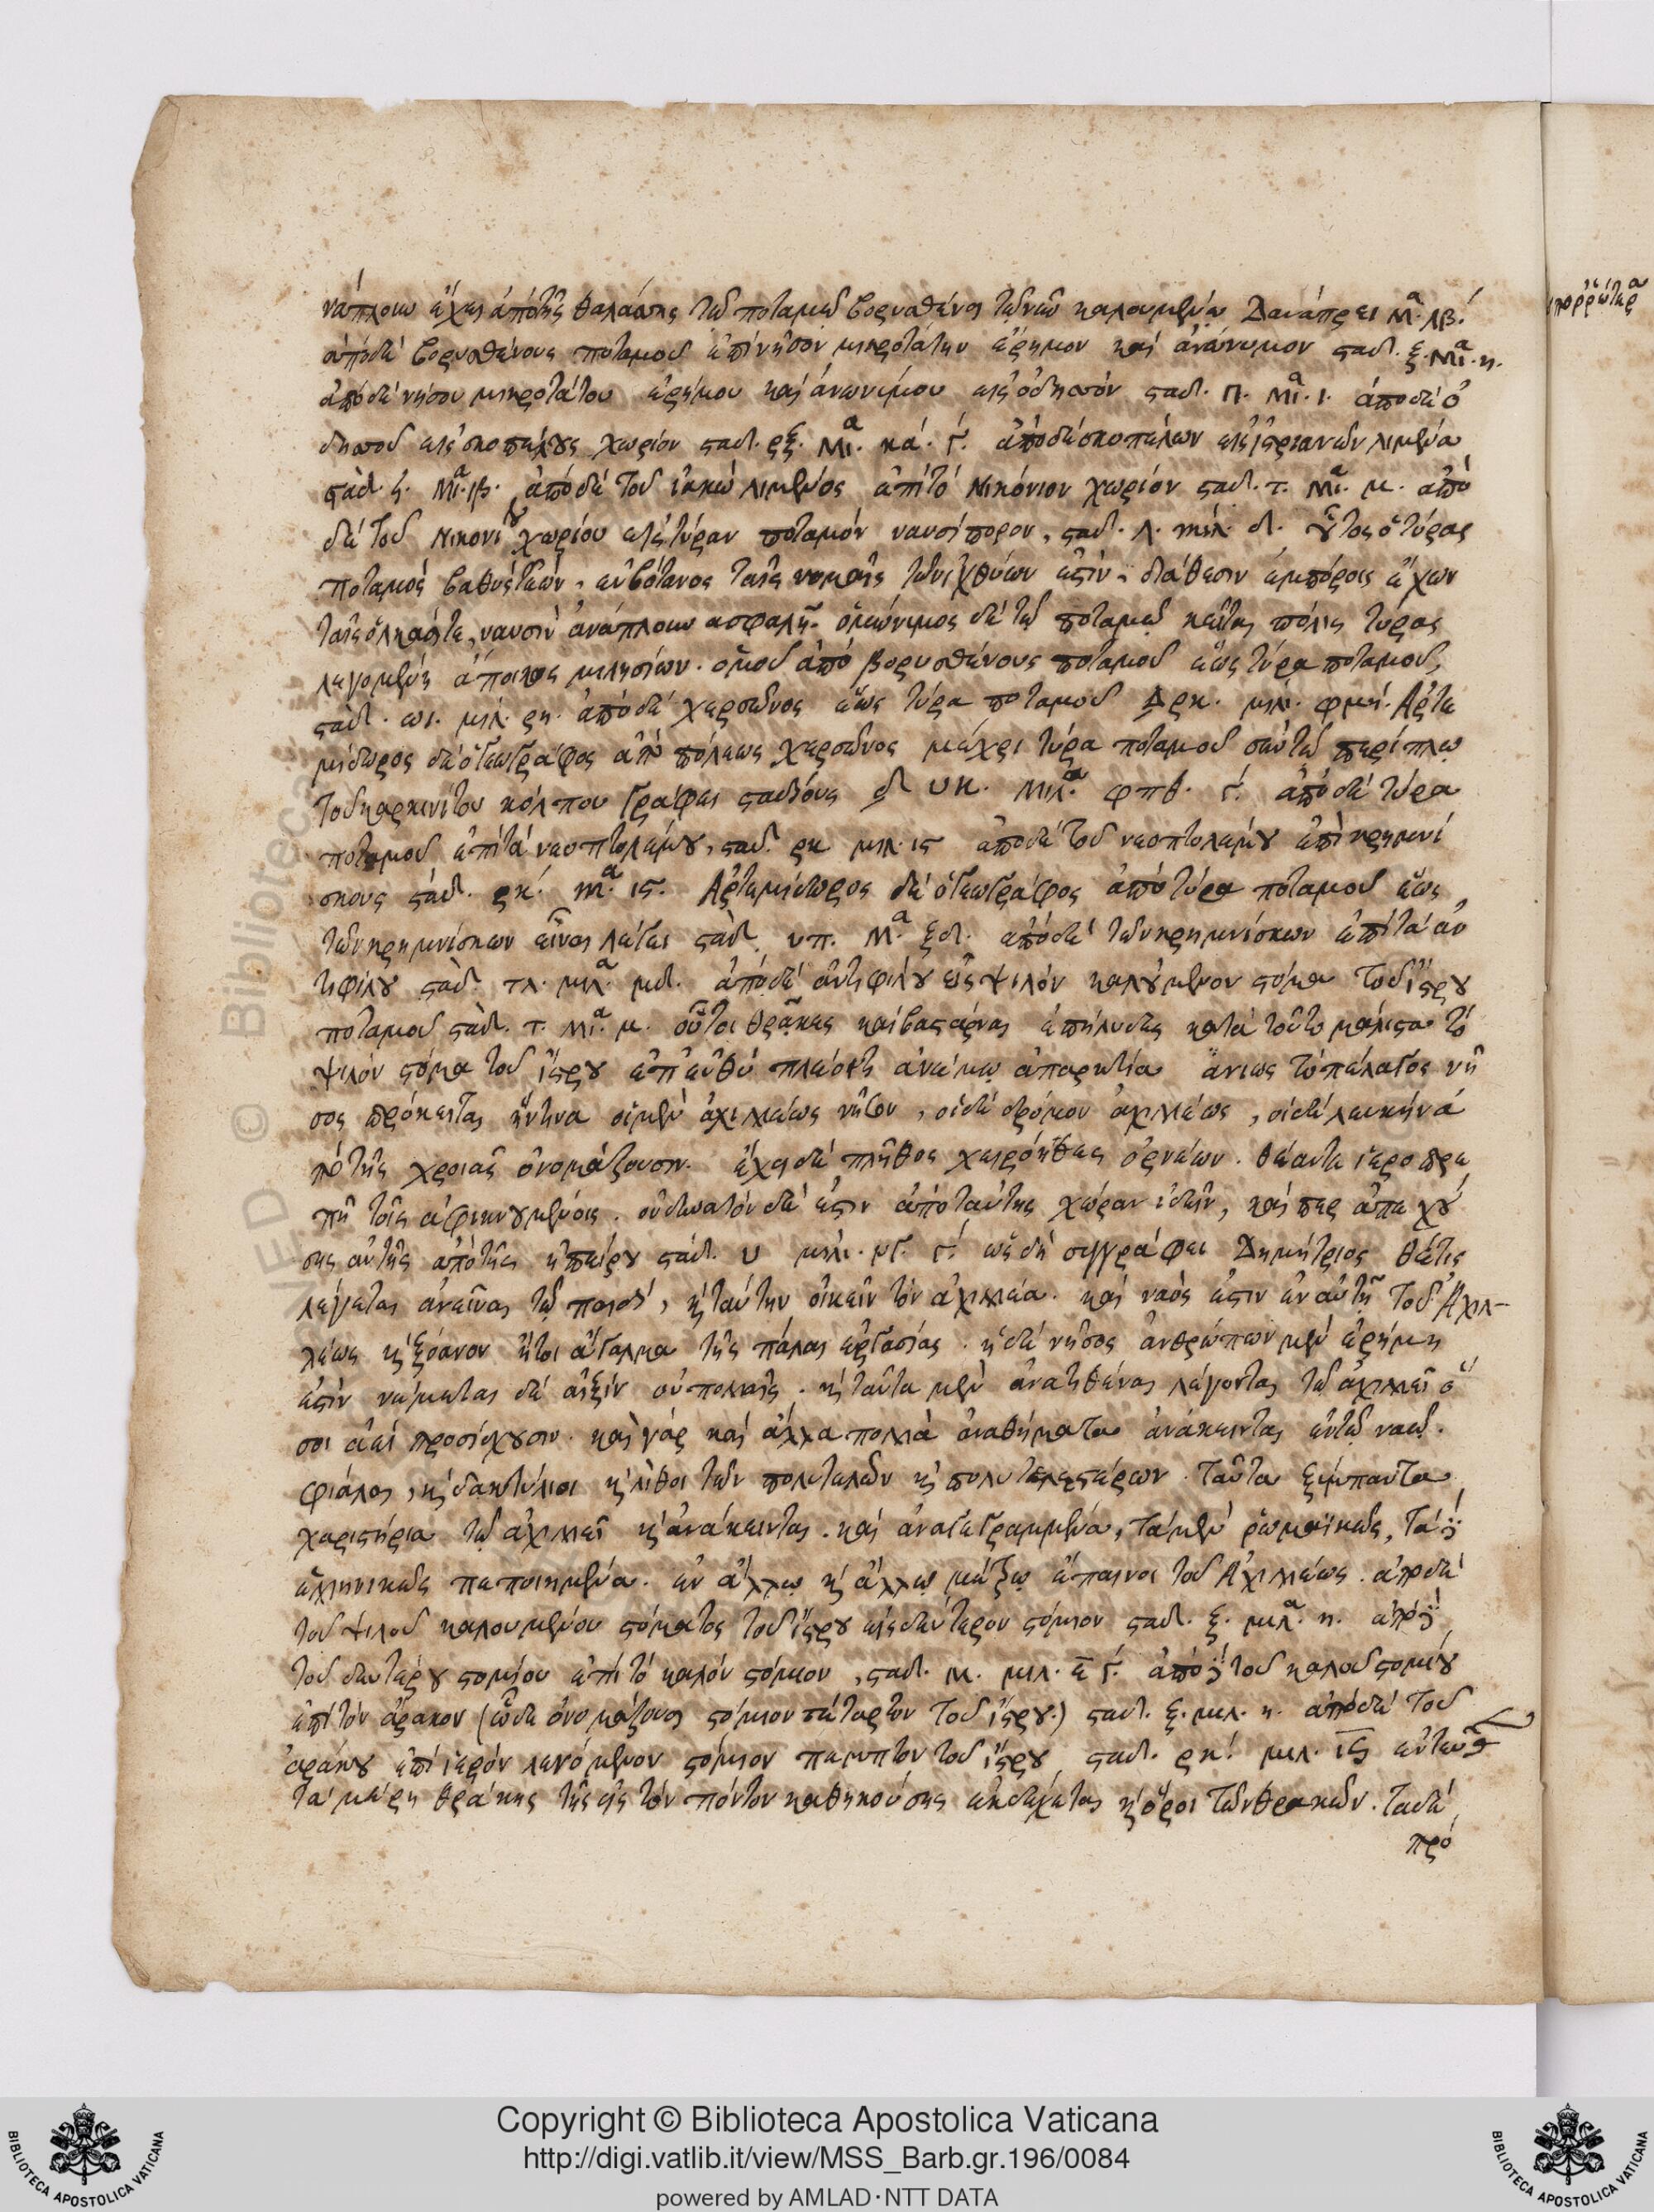 νάπλοιω ἔχει ἀπὸ τῆς θαλάσσης τῶ ποταμῶ βορυσθένει τῶ νῦν καλουμένω Δανάπρει Μ. λβ.
ἀπὸ δὲ βορυσθένους ποταμοῦ ἐπὶ νῆσον μικροτάτην ἔρημον καὶ ἀνώνυμον σταδ. ξ. Μι. η.
ἀπὸ δὲ νήσου μικροτάτου ἐρήμου καὶ ἀνωνύμου εἰς ὀδησσὸν σταδ. π. Μι. ι. ἀπὸ δὲ ὀ
δησσοῦ εἰς σκοπέλους χωρίον σταδ. ρξ. Μι. κά. γ́. ἀπὸ δὲ σκοπέλων εἰς ἰστριανῶν λιμένα
στάδ. Μι. ιβ. ἀπὸ δὲ τοῦ ἰακῶ λιμένος ἐπὶ τὸ Νικόνιον χωρίον σταδ. τ. Μι. μ. ἀπὸ
δὲ τοῦ Νικονίου χωρίου εἰς τύραν ποταμὸν ναυσίπορον, σταδ. λ. μιλ. δ. οὗτος ὁ τύρας
ποταμὸς βαθύς τε ὢν, εὔβοτανος ταῖς νομαῖς τῶν ἰχθύων ἐστὶν. διάθεσιν ἐμπόροις ἔχων
ταῖς ὁλκάσι τε, ναυσὶν ἀνάπλοιω ασφαλῆ. ὁμώνυμος δὲ τῶ ποταμῶ κεῖται πόλις τύρας
λεγομένη ἄποικος μιλησίων. ὁμοῦ ἀπὸ βορυσθένους ποταμοῦ ἕως τύρα ποταμοῦ,
στάδ. ωι. μιλ. ρη. ἀπὸ δὲ χερσῶνος ἕως τύρα ποταμοῦ Δρκ. μιλ. φμθ. Ἀρτε
μίδωρος δὲ ὁ γεωγράφος ἀπὸ πόλεως χερσῶνος μέχρι τύρα ποταμοῦ σὺν τῶ περίπλω
τοῦ καρκινίτου κόλπου γράφει σταδίους δ υκ. Μιλ. φπθ. γ́. ἀπὸ δὲ τύρα
ποταμοῦ ἐπὶ τὰ νεοπτολέμου, σταδ. ρκ μιλ. ις ἀπὸ δὲ τοῦ νεοπτολέμου ἐπὶ κρημνί
σκους στάδ. ρκ. Μ. ις. Ἀρτεμίδωρος δὲ ὁ γεωγράφος ἀπὸ τύρα ποταμοῦ ἕως
τῶν κρημνίσκων εἶναι λέγει στάδ. υπ. Μ. ξδ. ἀπὸ δὲ τῶν κρημνίσκων ἐπὶ τὰ ἀν
τιφίλου στάδ. τλ. μιλ. μδ. ἀπὸ δὲ ἀντιφίλου εἰς ψιλὸν καλούμενον στόμα τοῦ ἴστρου
ποταμοῦ στάδ. τ. Μι. μ. οὗτοι θρᾶκες καὶ βαστάρναι ἐπήλυδες κατὰ τοῦτο μάλιστα τὸ
ψιλὸν στόμα τοῦ ἴστρου ἐπ εὐθὺ πλέοντι ἀνέμω ἀπαρκτία ἄνιως τὸ πέλαγος νῆ
σος πρόκειται ἥντινα οἱ μὲν ἀχιλλέως νῆσον, οἱ δὲ δρόμον ἀχιλλέως, οἱ δὲ λευκὴν ἀ
πὸ τῆς χροιᾶς ὀνομάζουσιν. ἔχει δὲ πλῆθος χειρόηθες ὀρνέων. θέαντε ἱεροπρε
πῆ τοῖς ἀφικνουμένοις. οὐ δυνατὸν δέ ἐστιν ἀπὸ ταύτης χώραν ἰδεῖν, καίπερ ἀπεχού
σης αὐτῆς ἀπὸ τῆς ἠπείρου στάδ. υ μιλ. νγ. γ́. ὡς δὴ συγγράφει Δημήτριος θέτις
λέγεται ἀνεῖναι τῶ παιδὶ, κὶ ταύτην οἰκεῖν τὸν ἀχιλλέα. καὶ ναὸς ἐστιν ἐν αὐτῆ τοῦ Ἀχιλ-
λέως κὶ ξόανον ἤτοι ἄγαλμα τῆς πάλαι ἐργασίας. ἡ δὲ νῆσος ἀνθρώπων μὲν ἐρήμη
ἐστὶν νέμεται δὲ αἰξὶν οὐ πολλαῖς. κὶ ταῦτα μὲν ἀνατιθέναι λέγονται τῶ ἀχιλλεῖ ὅ
σοι ἀεὶ προσίσχουσιν. καὶ γὰρ καὶ ἄλλα πολλὰ ἀναθήματα ἀνάκεινται ἐν τῶ ναῶ.
φιάλαι, κὶ δακτύλιοι κὶ λίθοι τῶν πολυτελῶν κὶ πολυτελεστέρων. ταῦτα ξύμπαντα
χαριστήρια τῶ ἀχιλλεῖ κὶ ἀνάκεινται. καὶ ἀναγεγραμμένα, τὰ μὲν ρωμαϊκῶς, τὰ δὲ
ἑλληνικῶς πεποιημένα. ἐν ἄλλω κὶ ἄλλω μέτρω ἔπαινοι τοῦ Ἀχιλλέως. ἀπὸ δὲ
τοῦ ψιλοῦ καλουμένου στόματος τοῦ ἴστρου εἰς δεύτερον στόμιον σταδ. ξ. μιλ. η. ἀπὸ δὲ
τοῦ δευτέρου στομίου ἐπὶ τὸ καλὸν στόμιον, σταδ. μ. μιλ. ε γ́. ἀπὸ δὲ τοῦ καλοῦ στομίου
ἐπὶ τὸν ἄρακον (ὧδε ὀνομάζουσι στόμιον τέταρτον τοῦ ἴστρου.) σταδ. ξ. μιλ. η. ἀπὸ δὲ τοῦ
ἀράκου ἐπὶ ἱερὸν λεγόμενον στόμιον πέμπτον τοῦ ἴστρου σταδ. ρκ. μιλ. ις ἐντεῦθ
τὰ μέρη θράκης τῆς εἰς τὸν πόντον καθηκούσης ἐκδέχεται κὶ ὅροι τῶν θρακῶν. τα δὲ
πρό
BIBLIOTECA APOSTOLICA VATICANA
Copyright © Biblioteca Apostolica Vaticana
http://digi.vatlib.it/view/MSS_Barb.gr.196/0084
powered by AMLAD·NTT DATA
BIBLIOTECA APOSTOLICA VATICANA